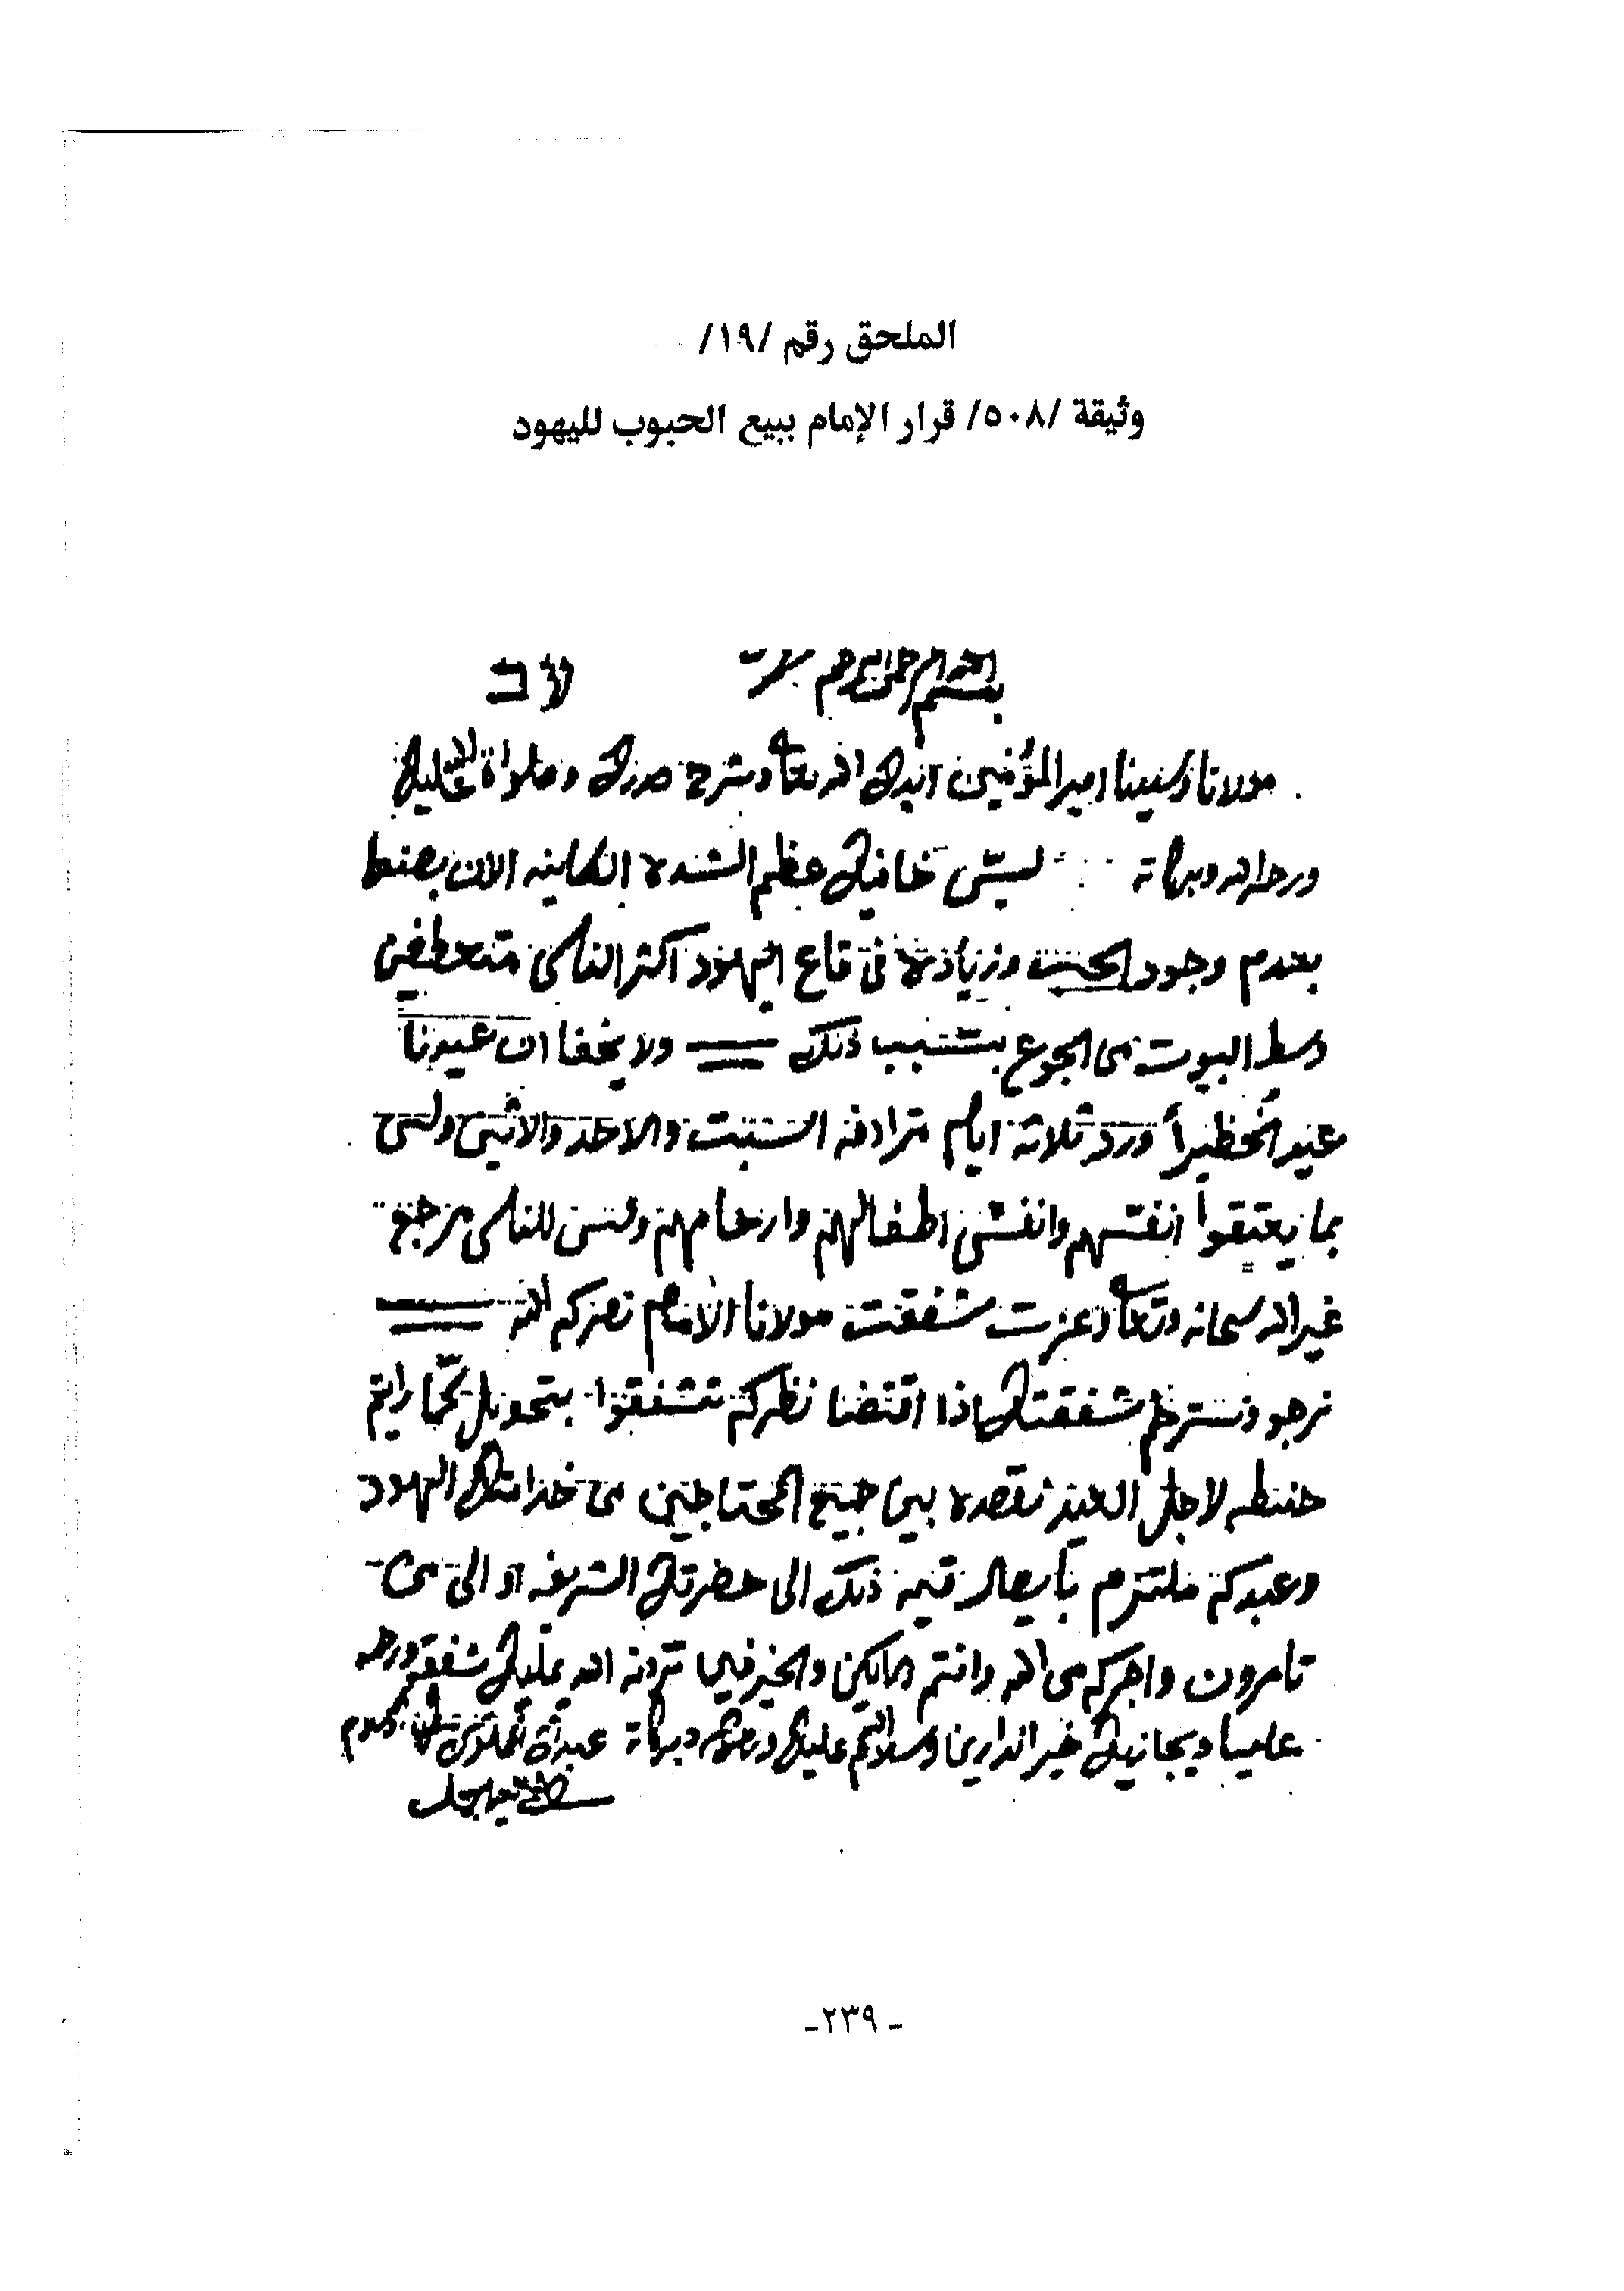 الملحق رقم /١٩/
وثيقة /٥٠٨/ قرار الإمام ببيع الحبوب لليهود
بسم الله الرحمن الرحيم
مولانا وسيدنا امير المؤمنين ايدكم الله تعالى وشرح صدركم وصلواة الله عليكم
ورحمة الله وبركاته ليس خافيكم عظم الشده الكاينه الان بصنعا
بعدم وجود الحب وزيادة في قاع اليهود اكثر الناس متعطفين
وسط البيوت من الجوع بسبب ذلك ولا يخفا ان عيدنا
عيد الخطير ورد ثلاثة ايام مترادفه السبت والاحد والاثنين وليس
بما يعتقوا انفسهم وانفس اطفالهم وارحامهم وليس للناس مرجع
غير الله سبحانه وتعالى وعزت شفقت مولانا الامام نصركم الله
نرجو ونسترحم شفقتكم اذا اقتضا نظركم تتشفقوا بتحويل كما رايتم
حنطه لاجل العيد نقصده بين جميع المحتاجين من خدامتكم اليهود
وعبدكم ملتزم بايصال قيمة ذلك الى حضرتكم الشريفه او الى من
تامرون واجركم من الله وانتم المالكين والخير فيما ترونه الله عليكم شفقه ورحمه
علينا ويجازيكم خير الدارين والسلام عليكم ورحمة الله وبركاته